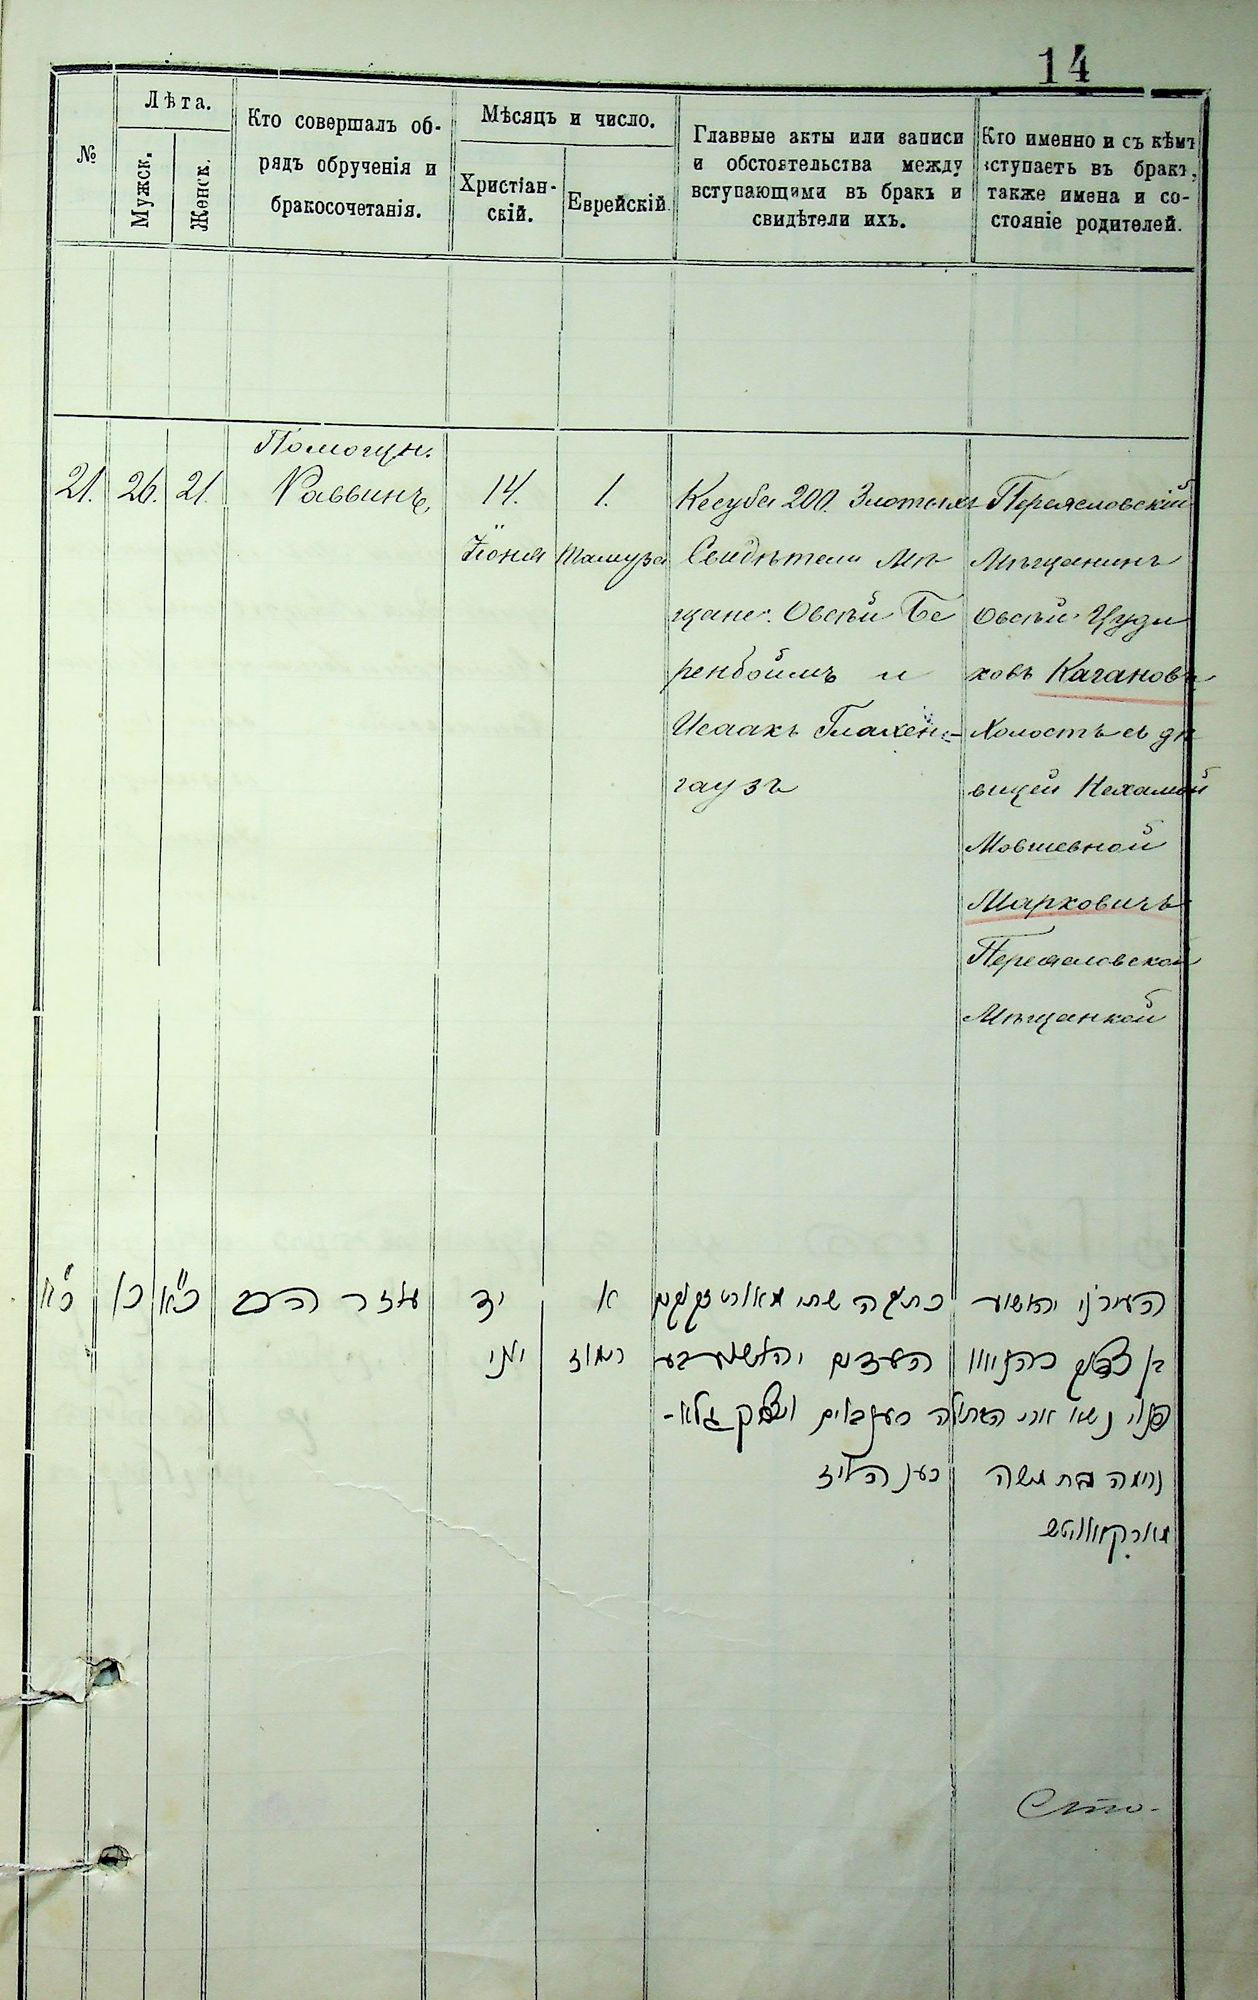 14
№
Лѣта.
Мужск.
Женск.
Кто совершалъ об-
рядъ обрученія и
бракосочетанія.
Мѣсяцъ и число.
Христіан-
скій.
Еврейскій.
Главные акты или записи
и обстоятельства между
вступающими въ бракъ и
свидѣтели ихъ.
Кто именно и съ кѣмъ
вступаетъ въ бракъ,
также имена и со-
стояніе родителей.
21.
26.
21.
Помощн.
Раввинъ
14.
Іюня
1.
Тамуза
Кесуба 200 Злотыхъ
Свидѣтели Мѣ
щане: Овсѣй Бе
ренбоймъ и
Исаакъ
гаузъ
Переясловскій
Мѣщанинъ
Овсѣй
ковъ Кагановъ
Холостъ съ дѣ
вицей Нехамой
Мовшевной
Марковичъ
Переясловской
Мѣщанкой
כ"א
כו
כ"א
עוזר הרב
יד
יוני
א
תמוז
העדים
העירוני יהושע
בן
פנוי נשא את הבתולה
נחמה בת משה
מארקאוויטש